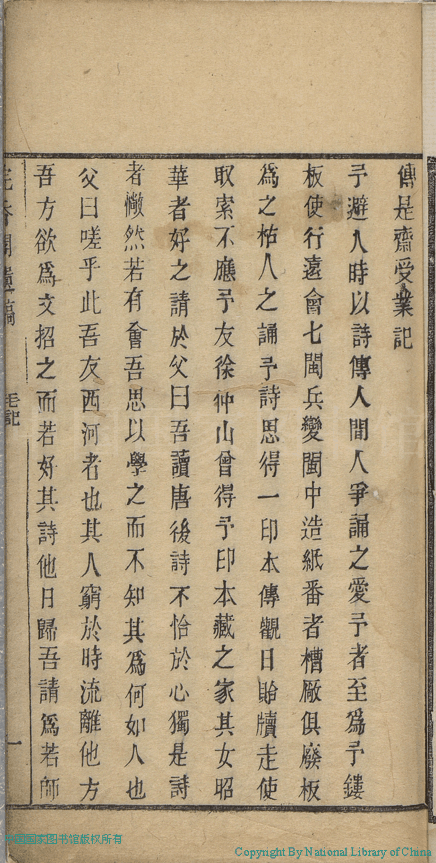 傳是齋受業記
予避人時以詩傳人間人爭誦之愛予者至爲予鏤
板使行遠會七閩兵變閩中造紙番者槽厰俱廢板
爲之枯人之誦予詩思得一印本傳觀日貽牘走使
取索不應予友徐仲山曾得予印本藏之家其女昭
華者好之請於父曰吾讀唐後詩不怡於心獨是詩
者憮然若有會吾思以學之而不知其爲何如人也
父曰嗟乎此吾友西河者也其人窮於時流離他方
吾方欲爲文招之而若好其詩他日歸吾請爲若師
毛記
一
中国国家图书馆版权所有
Copyright By National Library of China